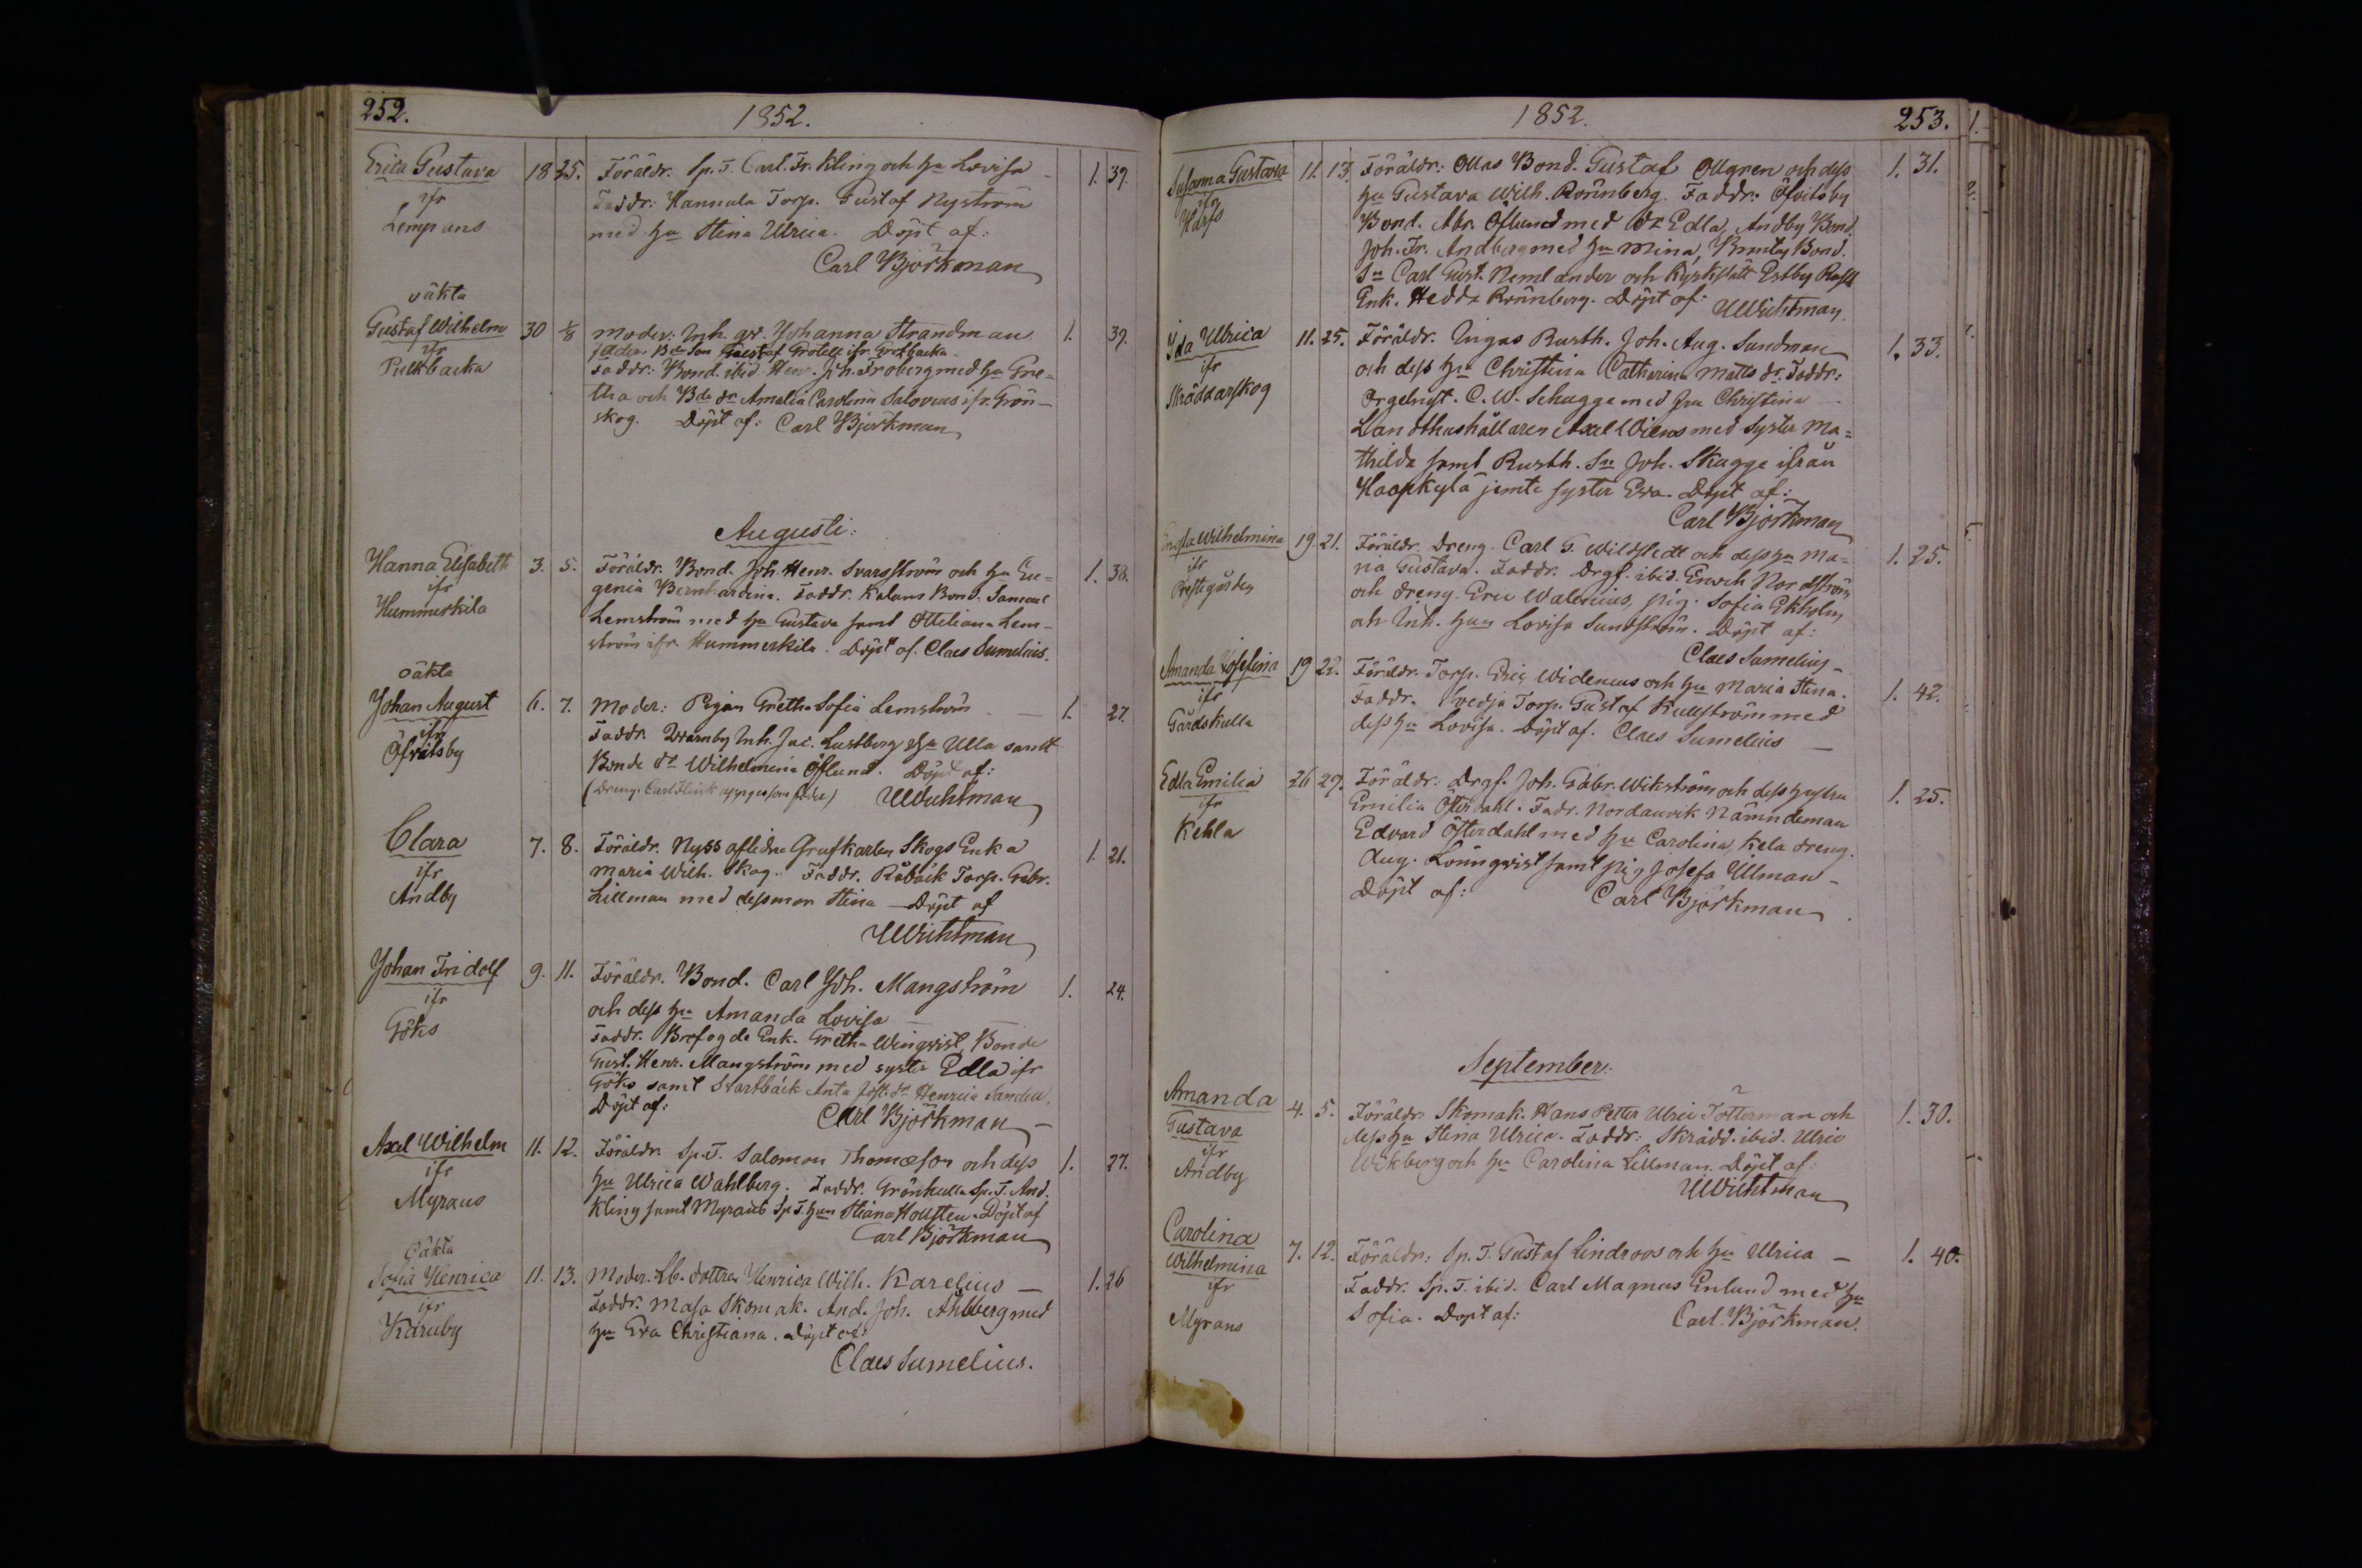 252.
1852.
Erica Gustava 18 25. Föräldr. Sp. T. Carl. Fr. Kling och hu Lovisa 1. 39.
ifr
Faddr: Hannula Torp. Gustaf Nyström
Lempans
med hu Stina Ulrica. Döpt af:
Carl Björkman
oäkta
Gustaf Wilhelm 30 1/8 Moder: Inh. Johanna Strandman 1. 39.
ifr
Pickbacka
Faddr: Bond. ibid. Henr. Joh. Froberg med hu Gre=
tha och Bde dr Amalia Carolina Salovius ifr. Grön-
skog. Döpt af: Carl Björkman
Augusti:
Hanna Elisabeth 3. 5. Föräldr. Bond. Joh. Henr. Svarsström och hu Eu= 1. 38.
ifr
genia Bernhardina. Faddr. Kalans Bond. Samuel
Hummerkila
Lemström med hu Gustava samt Ottiliana Lem-
ström ifr. Hummerkila. Döpt af. Claes Sumelius.
oäkta
Johan August 6. 7. Moder: Pigan Gretha Sofia Lemström 1. 27.
ifr
Faddr. Inh. Jac. Lustberg hu Ulla samt
Öfvitsby
Bonde dr Wilhelmina Öflund. Döpt af:
(Dreng. Carl Flink uppges som fader) UWichtman
Clara 7. 8. Föräldr. Nyss aflidne Grufkarlen Skogs Enka 1. 21.
ifr
Maria Wilh. Skog. Faddr. Råback Torp. Gabr.
Andby
Lillman med dess mor Stina Döpt af
UWichtman
Johan Fridolf 9. 11. Föräldr. Bond. Carl Joh. Mangström 1. 24.
ifr
och dess hu Amanda Lovisa
Göks
Faddr. Enk. Gretha Winqvist, Bonde
Gust. Henr. Mangström med syster Edla ifr
Göks samt Svartbäck dr Henrica Sandell.
Döpt af: Carl Björkman
Axel Wilhelm 11. 12. Föräldr. Sp. T. Salomon Thomæson och dess 1. 27.
ifr
hu Ulrica Wahlberg. Faddr. Grönkulla Sp. T. And.
Myrans
Kling samt Myrans Sp. T. hun Stiana Hollsten. Döpt af
Carl Björkman
Oäkta
Sofia Henrica 11. 13. Moder. Lb. dottren Henrica Wilh. Karelius 1. 26
ifr
Faddr. Masa Skomak. And. Joh. Ahlberg med
Karuby
hu Eva Christiana. Döpt af:
Claes Sumelius.
1852.
253.
Susanna Gustava 11. 13. Föräldr: Ollas Bond. Gustaf Ollgren och dess 1. 31.
ifr
hu Gustava Wilh. Rönnberg. Faddr: Öfvitsby
Bond. Abr. Öflund med dr Edla, Andby Bond.
Joh. Fr. Andberg med hu Mina, Bond.
Sn Carl Gust. Nemlander och Kyrkslätt Estby
Enk. Hedda Rönnberg. Döpt af: UWichtman.
Ida Ulrica 11. 25. Föräldr. Ingas Rusth. Joh. Aug. Sundman 1. 33.
ifr
och dess hu Christina Catharina Matts dr. Faddr:
Skräddarskog
Orgelnist. C. W. Schugge med fru Christina
Landthushållaren Axel Wilens med Syster Ma=
thilda samt Rusth. Sn Joh. Skugge ifrån
Haapkylä jemte syster Eva. Döpt af:
Carl Björkman
Wilhelmina 19. 21. Föräldr. Dreng. Carl G. Wildstedt och dess hu Ma= 1. 25.
ifr
ria Gustava. Faddr. Drgf. ibid. Enoch Nordström
Prestegården
och dreng. Eric Walenius, pig. Sofia Ekholm
och Inh. hun Lovisa Sundström. Döpt af:
Claes Sumelius
Amanda Josefina 19 22. Föräldr. Torp. Eric Widenius och hu Maria Stina. 1. 42.
ifr
Faddr. Svedja Torp. Gustaf Kullström med
Gårdskulla
dess hu Lovisa. Döpt af. Claes Sumelius
Edla Emilia 26 27. Föräldr: Drgf. Joh. Gabr. Wikström och dess hustru 1. 25.
ifr
Emilia Österdahl. Fadr. Nordanvik Nämndeman
Kehla
Edvard Österdahl med hu Carolina, Kela dreng.
Aug. Lönnqvist samt pig Josefa Ulman
Döpt af: Carl Björkman
September:
Amanda 4. 5. Föräldr: Skomak. Hans Petter Ulric Tötterman och 1. 30.
Gustava
dess hu Stina Ulrica. Faddr: Skrädd. ibid. Ulric
ifr
Wikberg och hu Carolina Lillman. Döpt af:
Andby
UWichtman
Carolina
Wilhelmina 7. 12. Föräldr: Sp. T. Gustaf Lindroos och hu Ulrica 1. 40.
ifr
Faddr. Sp. T. ibid. Carl Magnus Enlund med hu
Myrans
Sofia. Döpt af: Carl. Björkman.